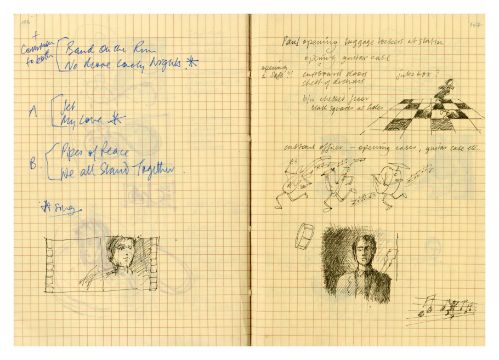 +
Common to both
Band on the Run
No More Lonely Nights *
A
Jet
My Love *
B
Pipes of Peace
We all Stand Together
* Song
Paul opening luggage lockers at station
opening guitar case
opening a safe?!
cupboard doors
chest of drawers
juke box?
b/w checked floor
black squares as holes
opening cases, guitar case etc.